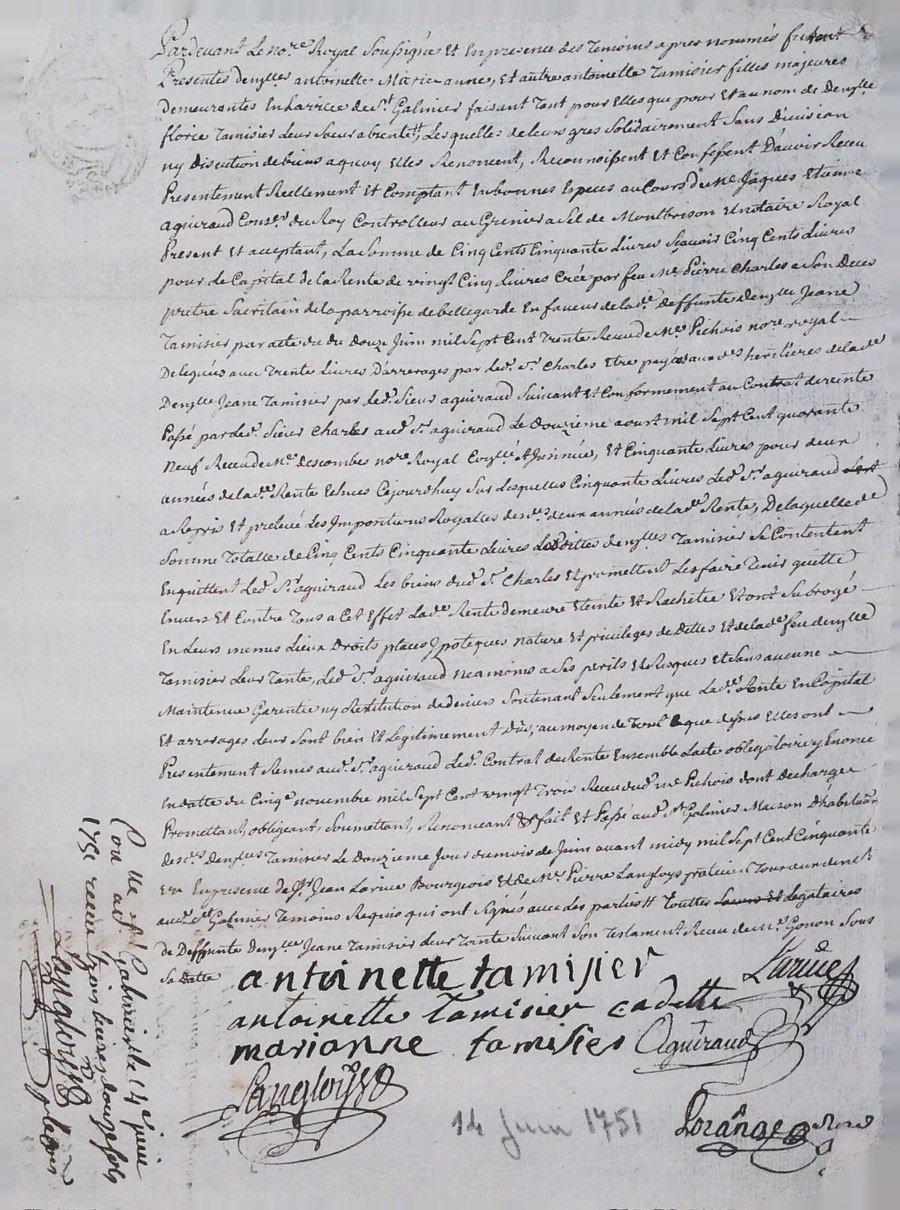 Pardevant Le no.re Royal Soussigné Et En presence des Temoins apres nommés furent
Presentes demy.lles antoinette Marie anne, Et autre antoinette Tamisier filles majeures
demeurantes En la ville de S.t Galmier faisant Tant pour Elles que pour Et au nom de Demy.lle
florie Tamisier Leur Sœur absente, Lesquelles de Leurs gres Solidairement Sans Division
ny Discution de biens a quoy Elles Renoncent, Reconnoissent Et Confessent D'avoir Receu
Presentement Reellement Et Comptant En bonnes Especes au Cours de M.e Jaques Etienne
aguiraud Cons.er du Roy Controlleur au Grenier a Sel de Montbrison Et notaire Royal
Present Et acceptant, La Somme de Cinq Cents Cinquante Livres Sçavoir Cinq Cents Livres
pour Le Capital de la Rente de vingt Cinq Livres Créé par feu M.re Pierre Charles a Son Deces
pretre Sacritain de la parroisse de bellegarde En faveur de lad.e deffunte demy.lle Jeane
Tamisier par acte du Douze Juin mil Sept Cent Trente Receu de M.e Pichois no.re royal
Delegués aux Trente Livres D'arrerages par led. S.r Charles Etre payés aux d.es heritieres de lad.e
Demy.lle Jeane Tamisier par led. Sieur aguiraud Suivant Et Conformement au Contrat de vente
Passé par led. Sieur Charles aud. S.r aguiraud Le Douzieme aoust mil Sept Cent quarante
Neuf Receu de M.e descombes no.re Royal Et Cinquante Livres pour deux
années de lad.e Rente Echues Cejourdhuy Sur Lesquelles Cinquante Livres Led. S.r aguiraud
a Repris Et prelevé Les Impositions Royalles des.es deux années de lad.e Rente, De laquelle de
Somme Totalle de Cinq Cents Cinquante Livres Lesdittes demy.lles Tamisier Se Contentent
En quittent Led. S.r aguiraud Les biens dud. S.r Charles Et promettent Les faire Tenir quitte
Envers Et Contre Tous a Cet Effet Lad.e Rente demeure Eteinte Et Rachetée Et ont Subrogé
En Leurs memes Lieux Droits places hypoteques nature Et privileges de Dittes Et de lad.e feu demy.lle
Tamisier Leur Tante, Led. S.r aguiraud Neamoins a Ses perils Et Risques Et Sans aucune
Maintenue Garentie ny Restitution de deniers Soutenant Seulement que Lad.e Rente En Capital
Et arrerages Leur Sont bien Et Legitimement Dûs, au moyen de Tout Ce que dessus Elles ont
Presentement Remis aud. S.r aguiraud Led. Contrat de Rente Ensemble Lacte obligatoire y Enoncé
En datte du Cinq.e novembre mil Sept Cent vingt Trois Receu dud. M.e Pichois dont decharge
Promettant, obligeant, Soumettant, Renonceant fait Et Passé aud. S.t Galmier Maison D'habitaon
des.es demy.lles Tamisier Le Douzieme Jour du mois de Juin avant midy mil Sept Cent Cinquante
un En presence de S.r Jean Larive Bourgeois Et de M.e Pierre Langloys praticien
aud. S.t Galmier Temoins Requis qui ont Signés avec Les parties Touttes Legataires
de Deffunte demy.lle Jeane Tamisier Leur Tante Suivant Son Testament Receu de M.e Gonon Sous
Sa datte
antoinette tamisier
Larive
antoinette Tamisier cadette
marianne tamisier
Aguiraud
Langloys
14 Juin 1751
Lorange
Con.lle a S.t Galmier le 14.e juin
1751 receu trois livres douze sols
Langloys